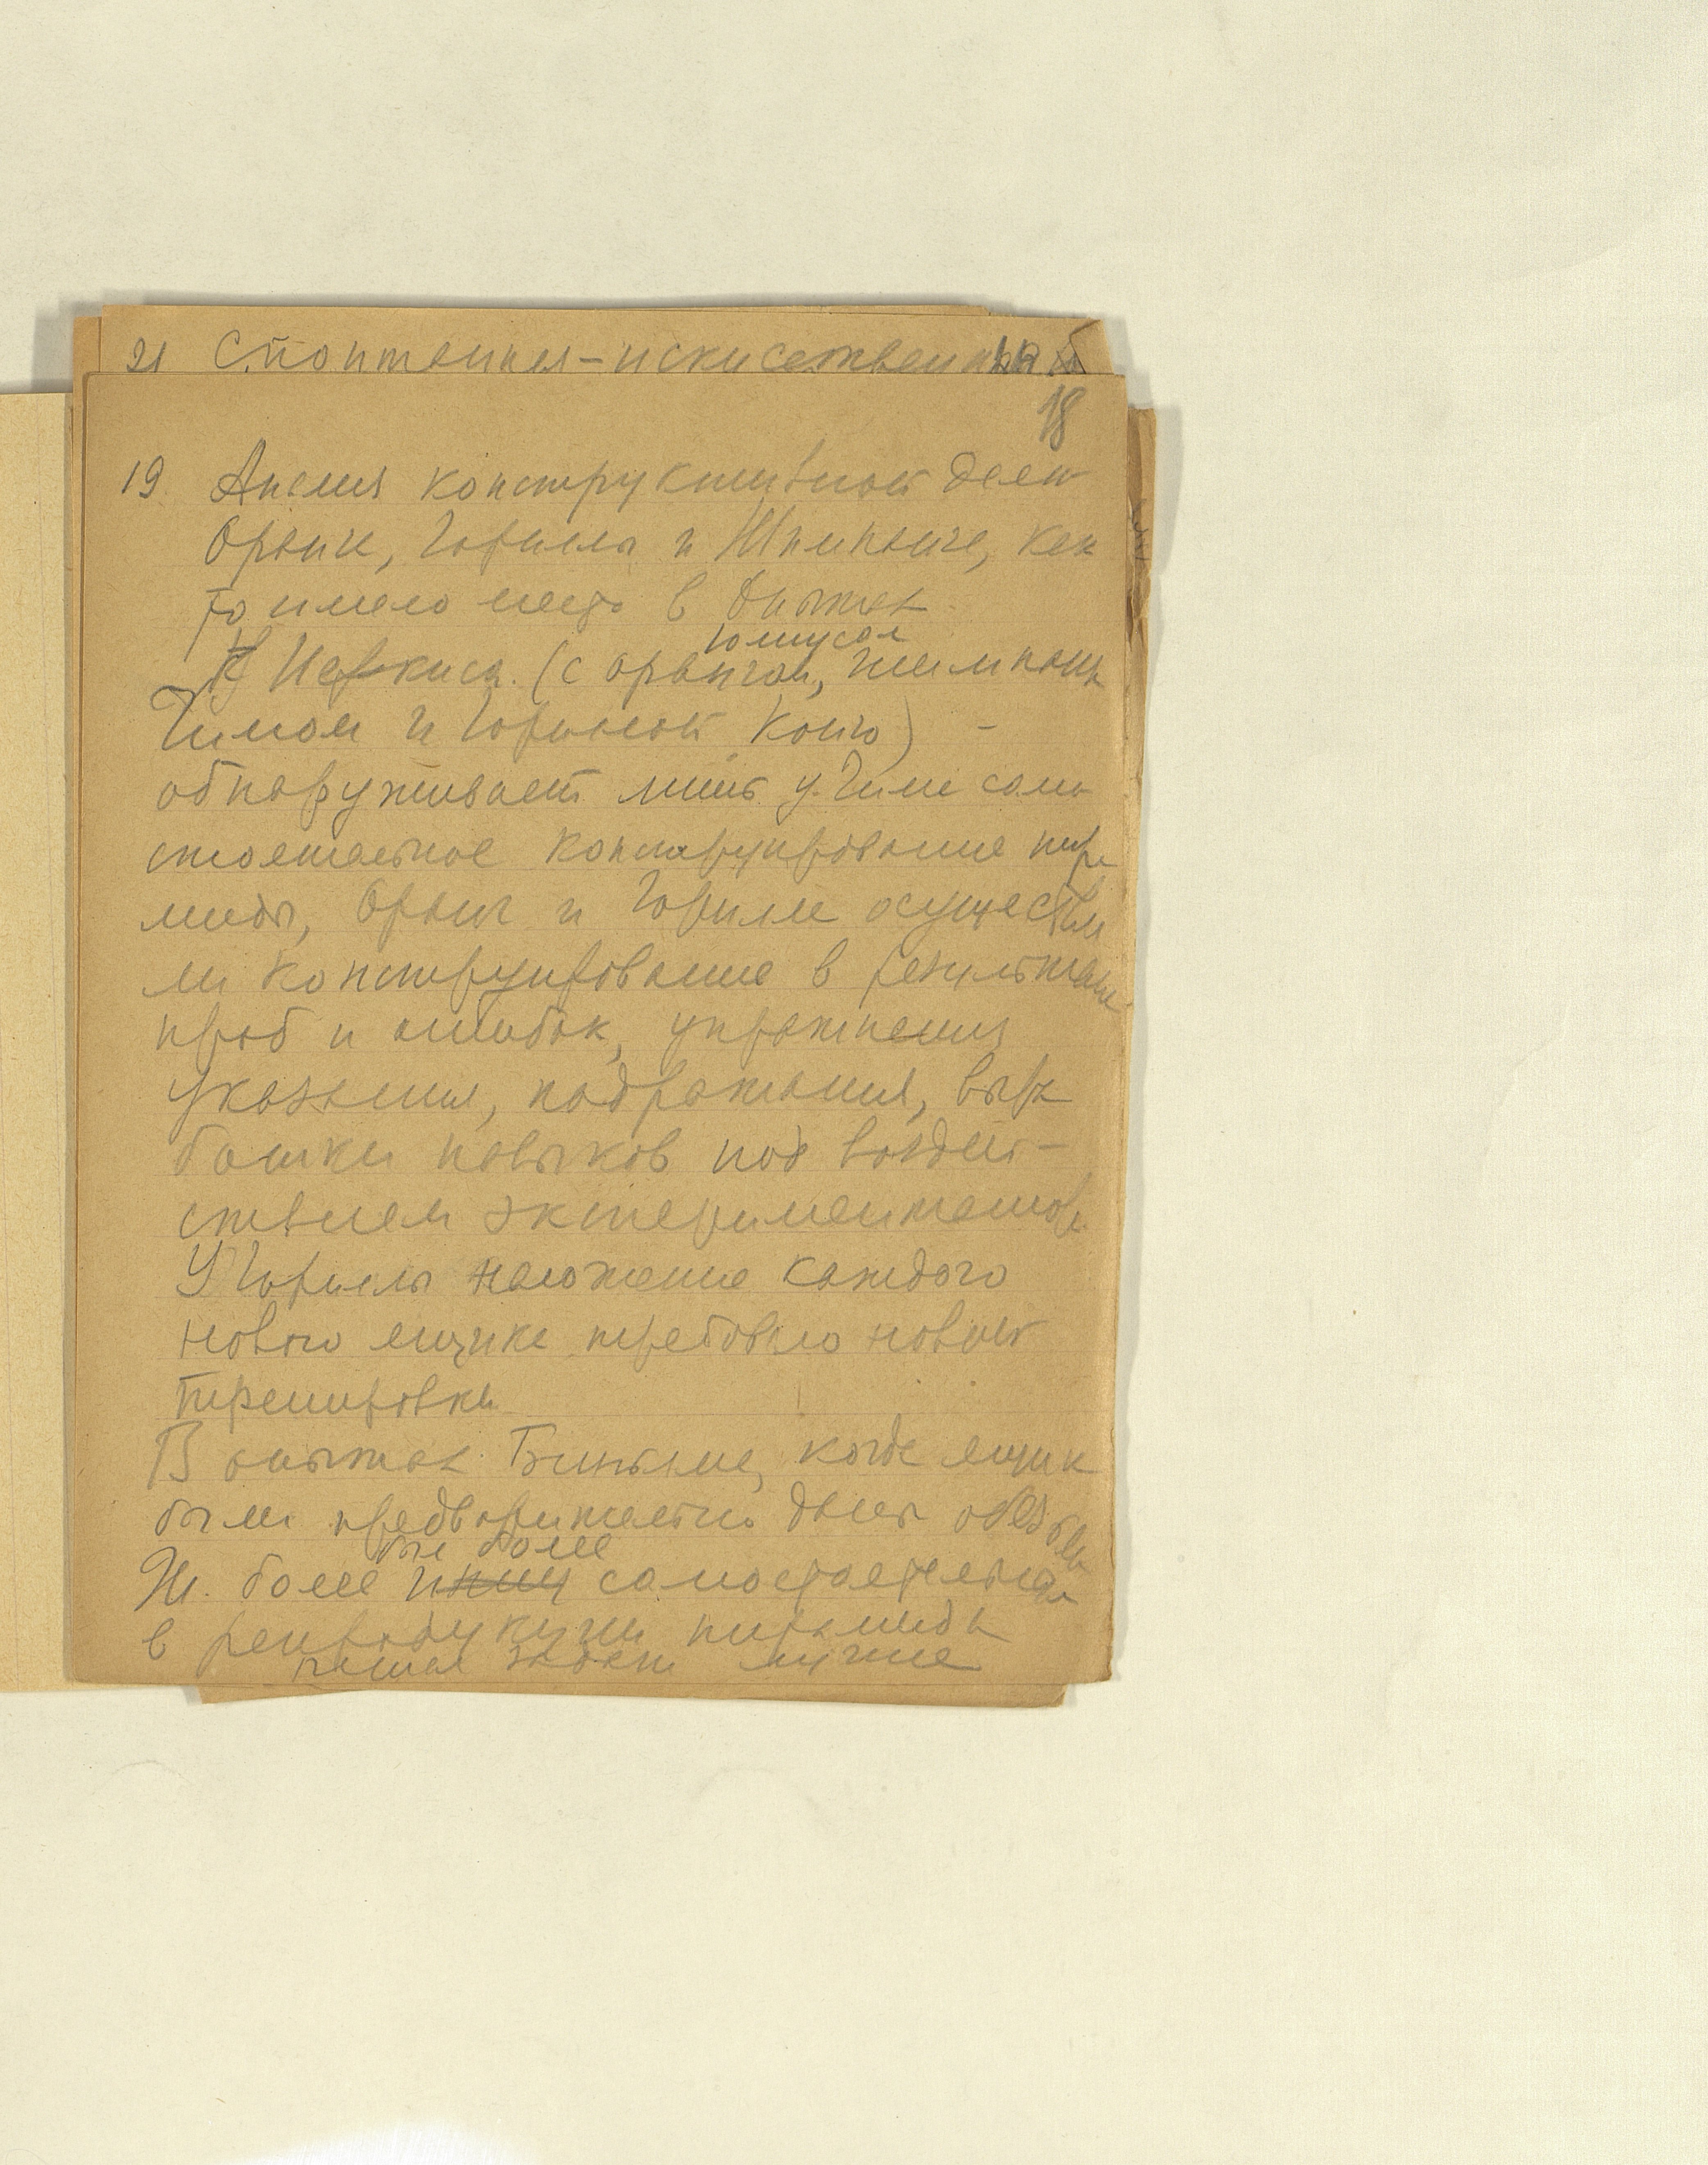 21 Спонтанная-искусственная
18
19 Анализ конструктивной деят
Оранга, Гориллы и Шимпанзе, как
то имело место в опытах
Иеркиса. (с орангом, шимпанзе
Юлиусом
Чимом и Гориллой Конго) -
обнаруживает лишь у Чима само
стоятельное конструирование пира
миды, Оранг и Горилла осуществи
ли конструирование в результате
проб и ошибок, упражнения
указания, подражания, выра
ботки навыков под воздей-
ствием экспериментатора
У Гориллы наложение каждого
нового ящика требовало новой
тренировки
В опытах Биньями, когда ящик
были предварительно даны обезьян
был более
Ш. более самостоятелен
в репродукции пирамиды
решал задачи лучше